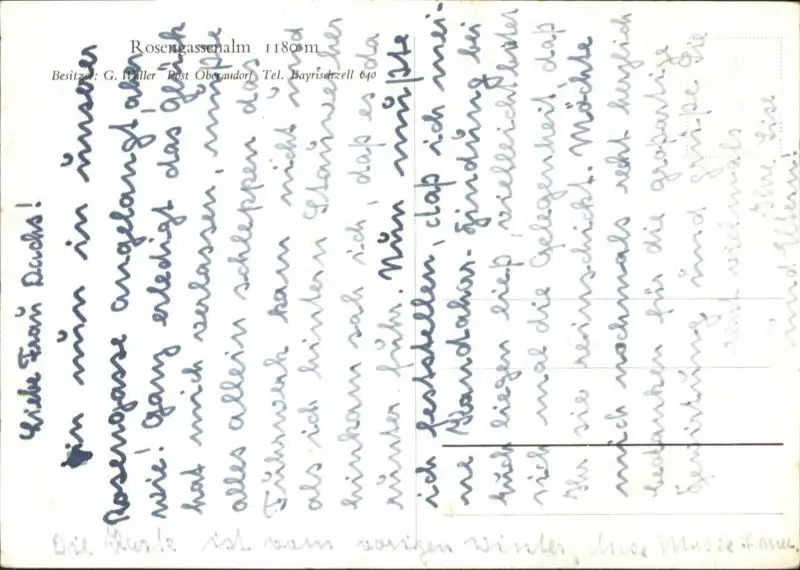 Rosengassenalm 1180 m
Besitzer: G. Waller Post Oberaudorf Tel. Bayrischzell 640
Liebe Frau Dachs!
Bin nun in unserer
Rosengasse angelangt, aber
wie! Ganz erledigt, das Glück
hat mich verlassen, mußte
alles allein schleppen, das
Fuhrwerk kam nicht und
als ich hintern Stauweiher
hinkam sah ich, daß es da
runter fuhr. Nun mußte
ich feststellen, daß ich mei-
ne bei
Euch liegen ließ, vielleicht
sich mal die Gelegenheit daß
Ihr sie reinschickt. Möchte
mich nochmals recht herzlich
bedanken für die großartige
und grüße Sie
vielmals
Ihre Lise
und Eltern!
Die Karte ist vom vorigen Winter,